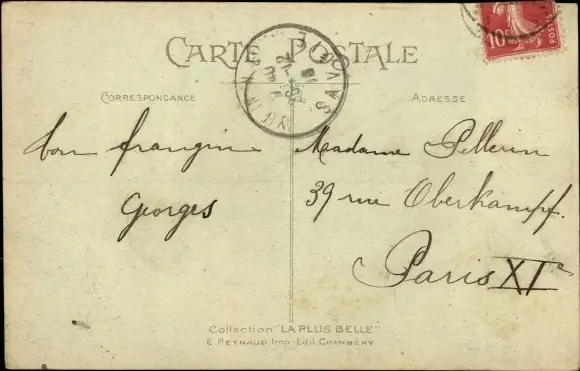 CARTE POSTALE
CORRESPONDANCE
ADRESSE
bon frangin
Georges
Madame Pellerin
39 rue Oberkampf.
Paris XIe
SAVOIE
10c POSTES
Collection "LA PLUS BELLE"
E. REYNAUD Imp. Edit. CHAMBÉRY